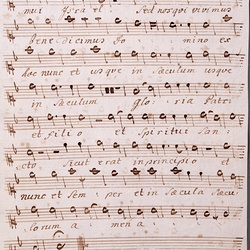 mur Israel Sed nos qui vivimus
benedicimus Do : mino ex
hoc nunc et usque in Sæculum usque
in sæculum glo : ria Patri
et filio et Spiritui San :
cto. Sicut erat in principio et
nunc et Sem : per et in sæcula sæcu :
lorum a : men a